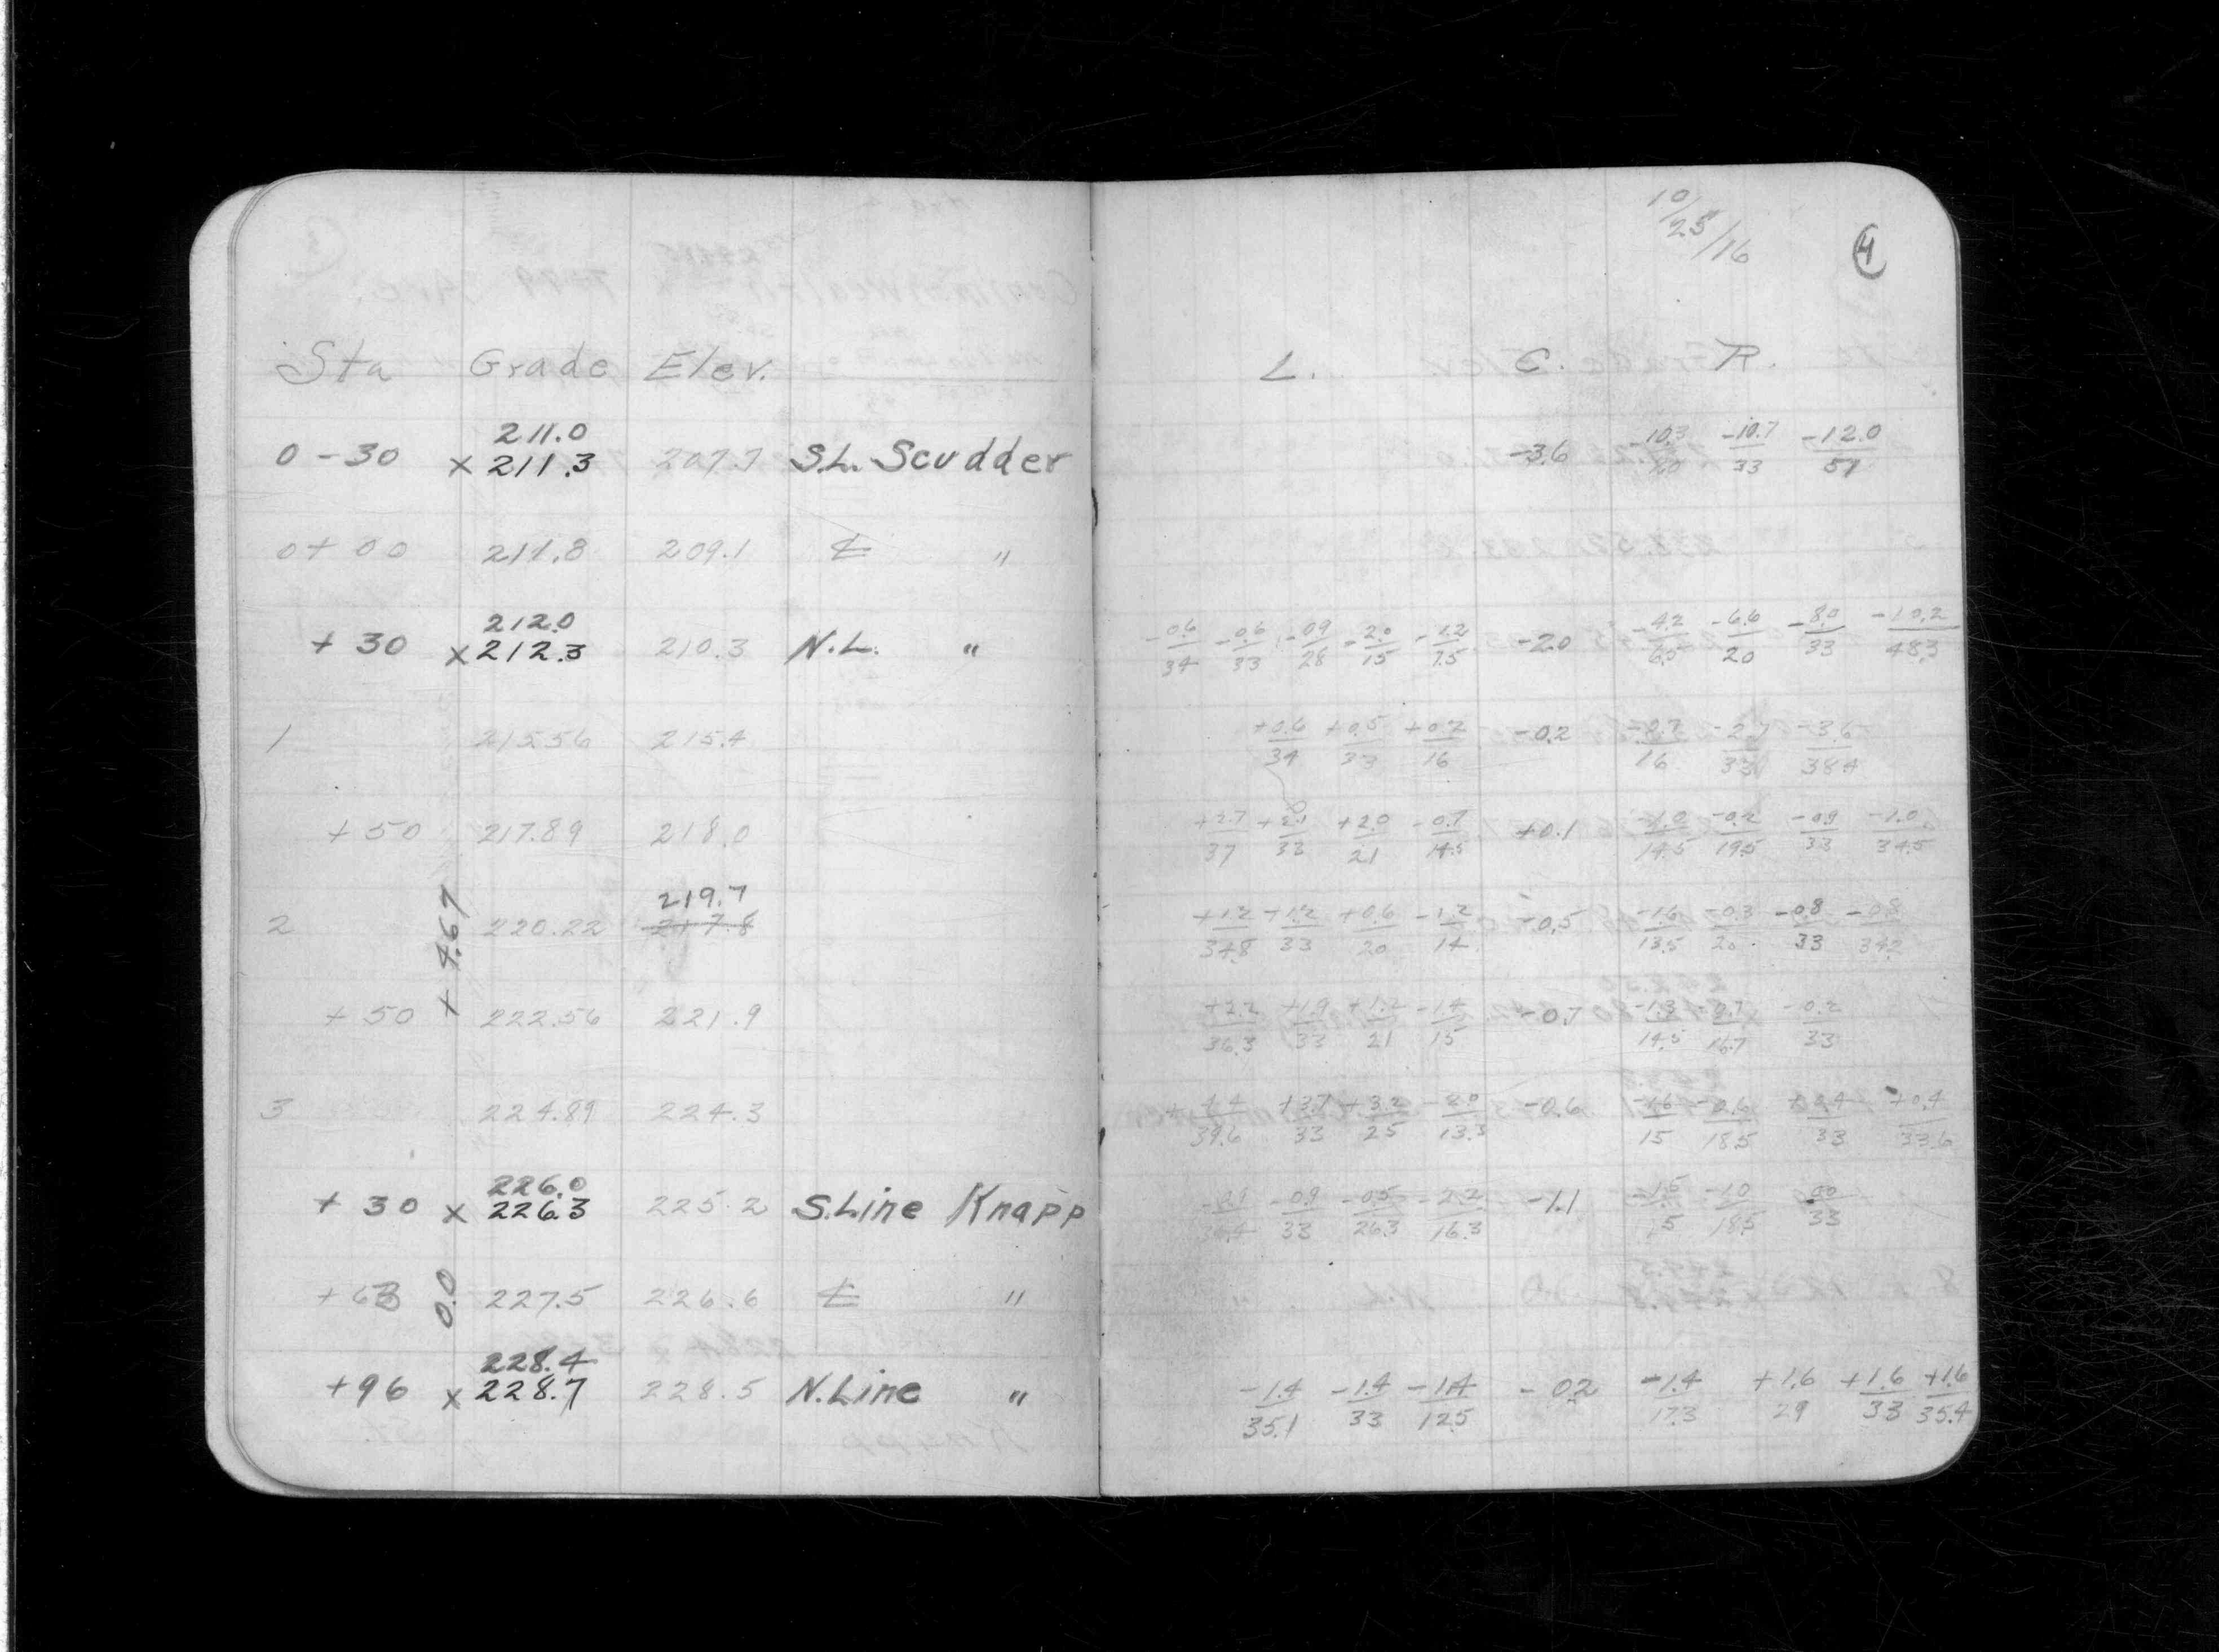 10/25/16
4
Sta Grade Elev. L. C. R.
211.0
0 - 30 x 211.3 207.7 S.L. Scudder -3.6 -10.3/20 -10.7/33 -12.0/51
0 + 00 211.8 209.1 ℄ "
212.0
+ 30 x 212.3 210.3 N.L. " -0.6/34 -0.6/33 -0.9/28 -2.0/15 -1.2/7.5 -2.0 -4.2/6.5 -6.6/20 -8.0/33 -10.2/48.3
1 215.56 215.4 +0.6/34 +0.5/33 +0.2/16 -0.2 -0.7/16 -2.7/33 -3.6/38.4
+ 50 217.89 218.0 +2.7/37 +2.1/33 +2.0/21 -0.7/14.5 +0.1 -1.0/14.5 -0.2/19.5 -0.9/33 -1.0/34.5
219.7
2 220.22 217.8 +1.2/34.8 +1.2/33 +0.6/20 -1.2/14 -0.5 -1.6/13.5 -0.3/20 -0.8/33 -0.8/34.2
+ 4.67
+ 50 222.56 221.9 +2.2/36.3 +1.9/33 +1.2/21 -1.4/15 -0.7 -1.3/14.5 -0.7/16.7 -0.2/33
3 224.89 224.3 +4.4/39.6 +3.7/33 +3.2/25 -2.0/13.3 -0.6 -1.6/15 -0.6/18.5 +0.4/33 +0.4/33.6
226.0
+ 30 x 226.3 225.2 S.Line Knapp -0.9/34.4 -0.9/33 -0.5/26.3 -2.2/16.3 -1.1 -1.5/15 -1.0/18.5 00/33
+ 63 227.5 226.6 ℄ "
0.0
228.4
+96 x 228.7 228.5 N.Line " -1.4/35.1 -1.4/33 -1.4/12.5 -0.2 -1.4/17.3 +1.6/29 +1.6/33 +1.6/35.4